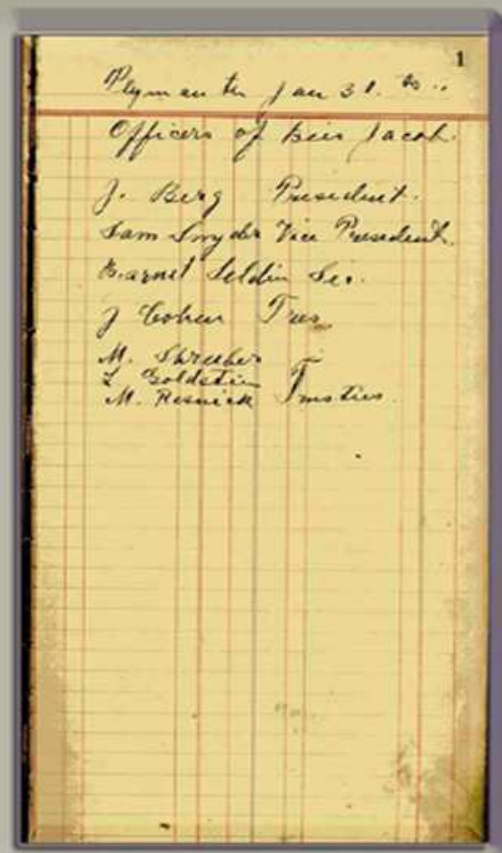 1
Plymouth Jan 31.
Officers of Beis Jacob.
J. Berg President.
Sam Snyder Vice President.
Barnet Seldin Sec.
J Cohen Tres
M. Shreiber
L Goldstein
M. Resnick Trusties.